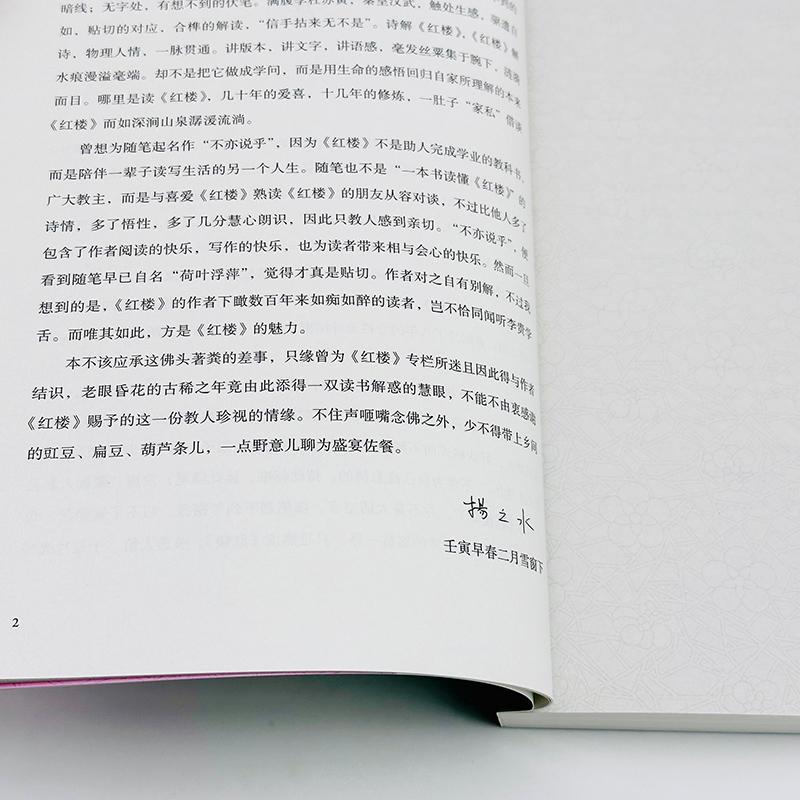 暗线；无字处，有想不到的伏笔。满腹
如，贴切的对应，合榫的解读，“信手拈来无不是”。诗解《红楼》，《红楼》
诗，物理人情，一脉贯通。讲版本，讲文字，讲语感，毫发丝粟集于腕下，
水痕漫溢毫端。却不是把它做成学问，而是用生命的感悟回归自家所理解的本来
面目。哪里是读《红楼》，几十年的爱喜，十几年的修炼，一肚子“家私”借谈
《红楼》而如深涧山泉潺湲流淌。
曾想为随笔起名作“不亦说乎”，因为《红楼》不是助人完成学业的教科书，
而是陪伴一辈子读写生活的另一个人生。随笔也不是“一本书读懂《红楼》”的
广大教主，而是与喜爱《红楼》熟读《红楼》的朋友从容对谈，不过比他人多了
诗情，多了悟性，多了几分慧心朗识，因此只教人感到亲切。“不亦说乎”，便
包含了作者阅读的快乐，写作的快乐，也为读者带来相与会心的快乐。然而一旦
看到随笔早已自名“荷叶浮萍”，觉得才真是贴切。作者对之自有别解，不过我
想到的是，《红楼》的作者下瞰数百年来如痴如醉的读者，岂不恰同闻听李贵学
舌。而唯其如此，方是《红楼》的魅力。
本不该应承这佛头著粪的差事，只缘曾为《红楼》专栏所迷且因此得与作者
结识，老眼昏花的古稀之年竟由此添得一双读书解惑的慧眼，不能不由衷感谢
《红楼》赐予的这一份教人珍视的情缘。不住声咂嘴念佛之外，少不得带上乡间
的豇豆、扁豆、葫芦条儿，一点野意儿聊为盛宴佐餐。
揚之水
壬寅早春二月雪窗下
2